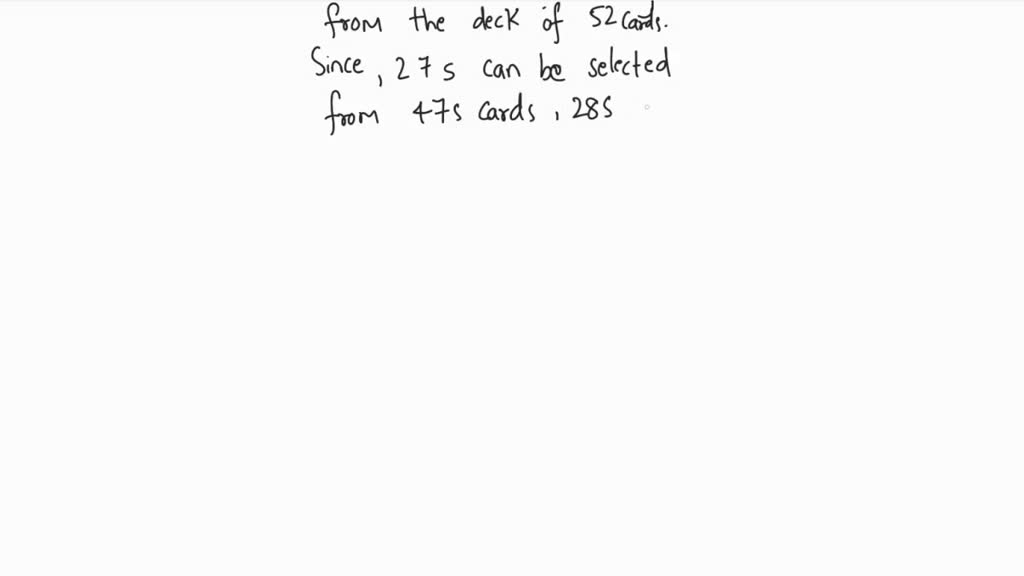 from the deck of 52 cards.
Since, 2 7s can be selected
from 4 7s cards, 2 8s